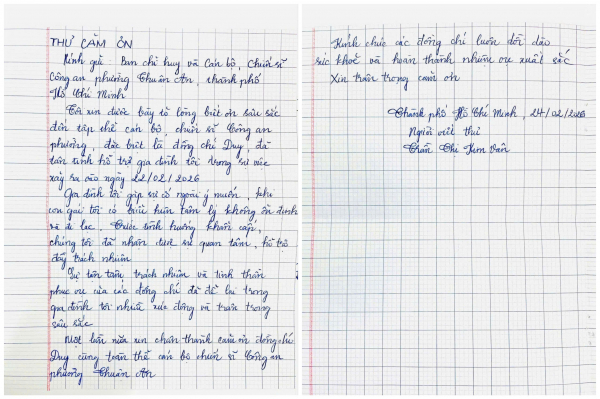 THƯ CẢM ƠN
Kính gửi Ban chỉ huy và Cán bộ, Chiến sĩ
Công an phường Thuận An, thành phố
Hồ Chí Minh
Tôi xin được bày tỏ lòng biết ơn sâu sắc
đến tập thể cán bộ, chiến sĩ Công an
phường, đặc biệt là đồng chí Duy, đã
tận tình hỗ trợ gia đình tôi trong sự việc
xảy ra vào ngày 22/02/2026
Gia đình tôi gặp sự cố ngoài ý muốn, khi
con gái tôi có biểu hiện tâm lý không ổn định
và đi lạc. Trước tình huống khẩn cấp,
chúng tôi đã nhận được sự quan tâm, hỗ trợ
đầy trách nhiệm
Sự tận tâm, trách nhiệm và tinh thần
phục vụ của các đồng chí đã để lại trong
gia đình tôi nhiều xúc động và trân trọng
sâu sắc
Một lần nữa xin chân thành cảm ơn đồng chí
Duy cùng toàn thể cán bộ chiến sĩ Công an
phường Thuận An
Kính chúc các đồng chí luôn dồi dào
sức khoẻ và hoàn thành nhiệm vụ xuất sắc
Xin trân trọng cảm ơn
Thành phố Hồ Chí Minh, 24/02/2026
Người viết thư
Trần Thị Kim Vân